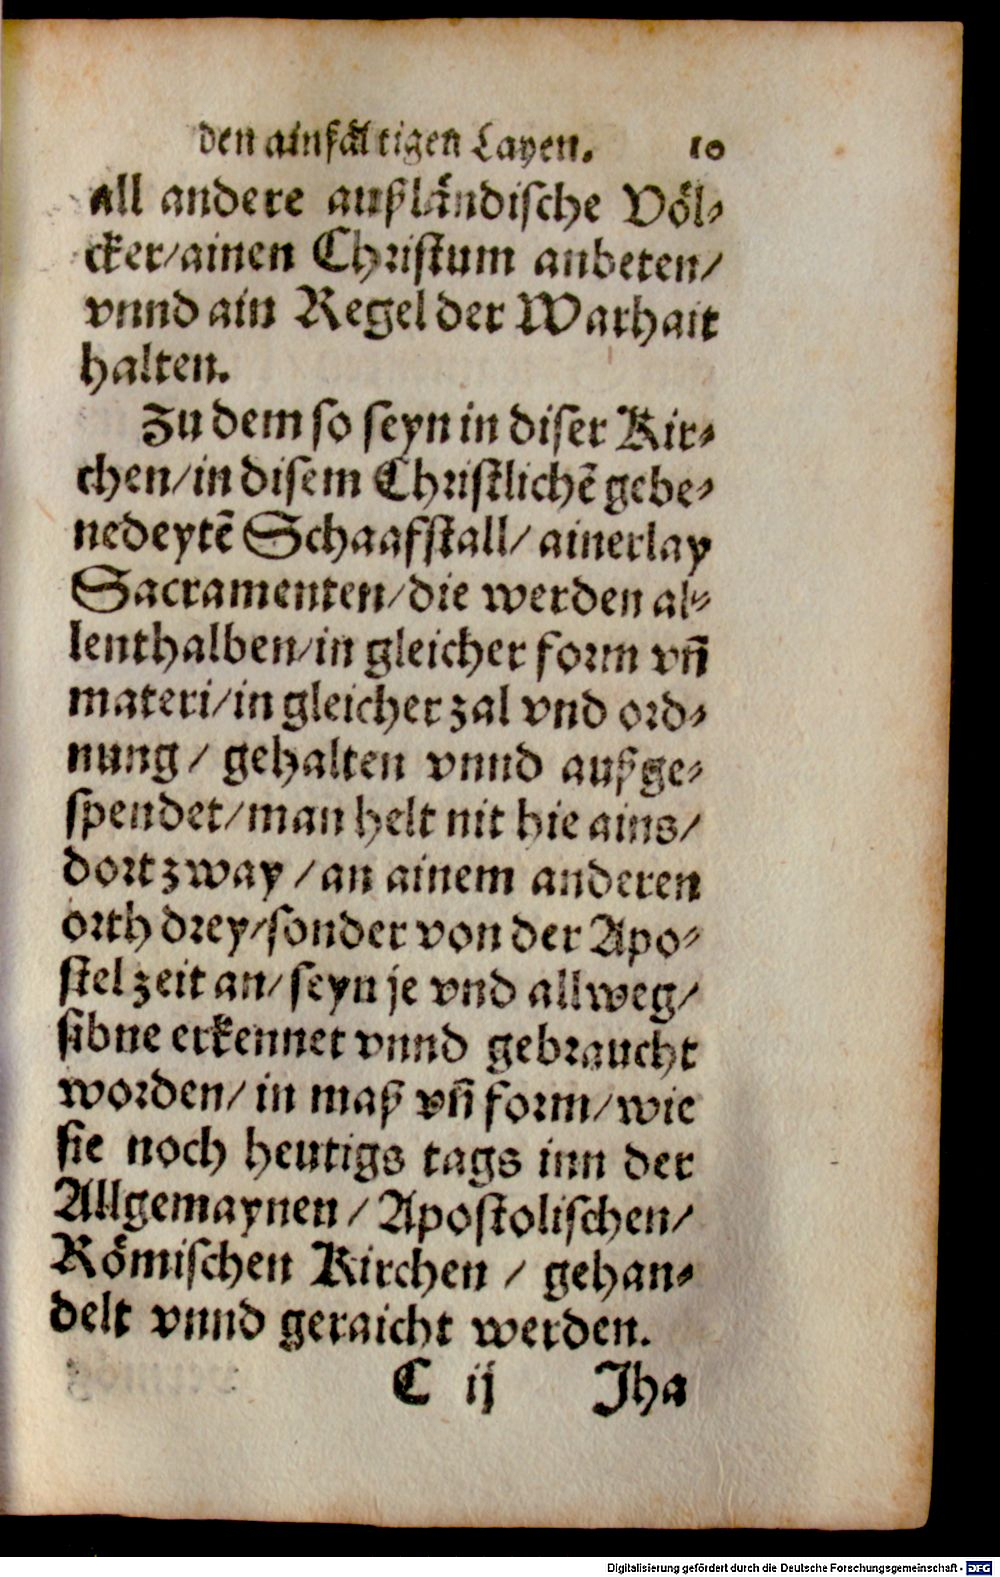 den ainfältigen Layen. 10
all andere außländische Völ⸗
cker/ainen Christum anbeten/
vnnd ain Regel der Warhait
halten.
Zu dem so seyn in diser Kir⸗
chen/in disem Christlichẽ gebe⸗
nedeytẽ Schaafstall/ ainerlay
Sacramenten/die werden al⸗
lenthalben/in gleicher form vñ
materi/in gleicher zal vnd ord⸗
nung / gehalten vnnd außge⸗
spendet/man helt nit hie ains/
dort zway /an ainem anderen
orth drey/sonder von der Apo⸗
stel zeit an/ seyn je vnd allweg/
sibne erkennet vnnd gebraucht
worden/ in maß vñ form/wie
sie noch heutigs tags inn der
Allgemaynen / Apostolischen/
Römischen Kirchen / gehan⸗
delt vnnd geraicht werden.
C ij Jha
Digitalisierung gefördert durch die Deutsche Forschungsgemeinschaft - DFG